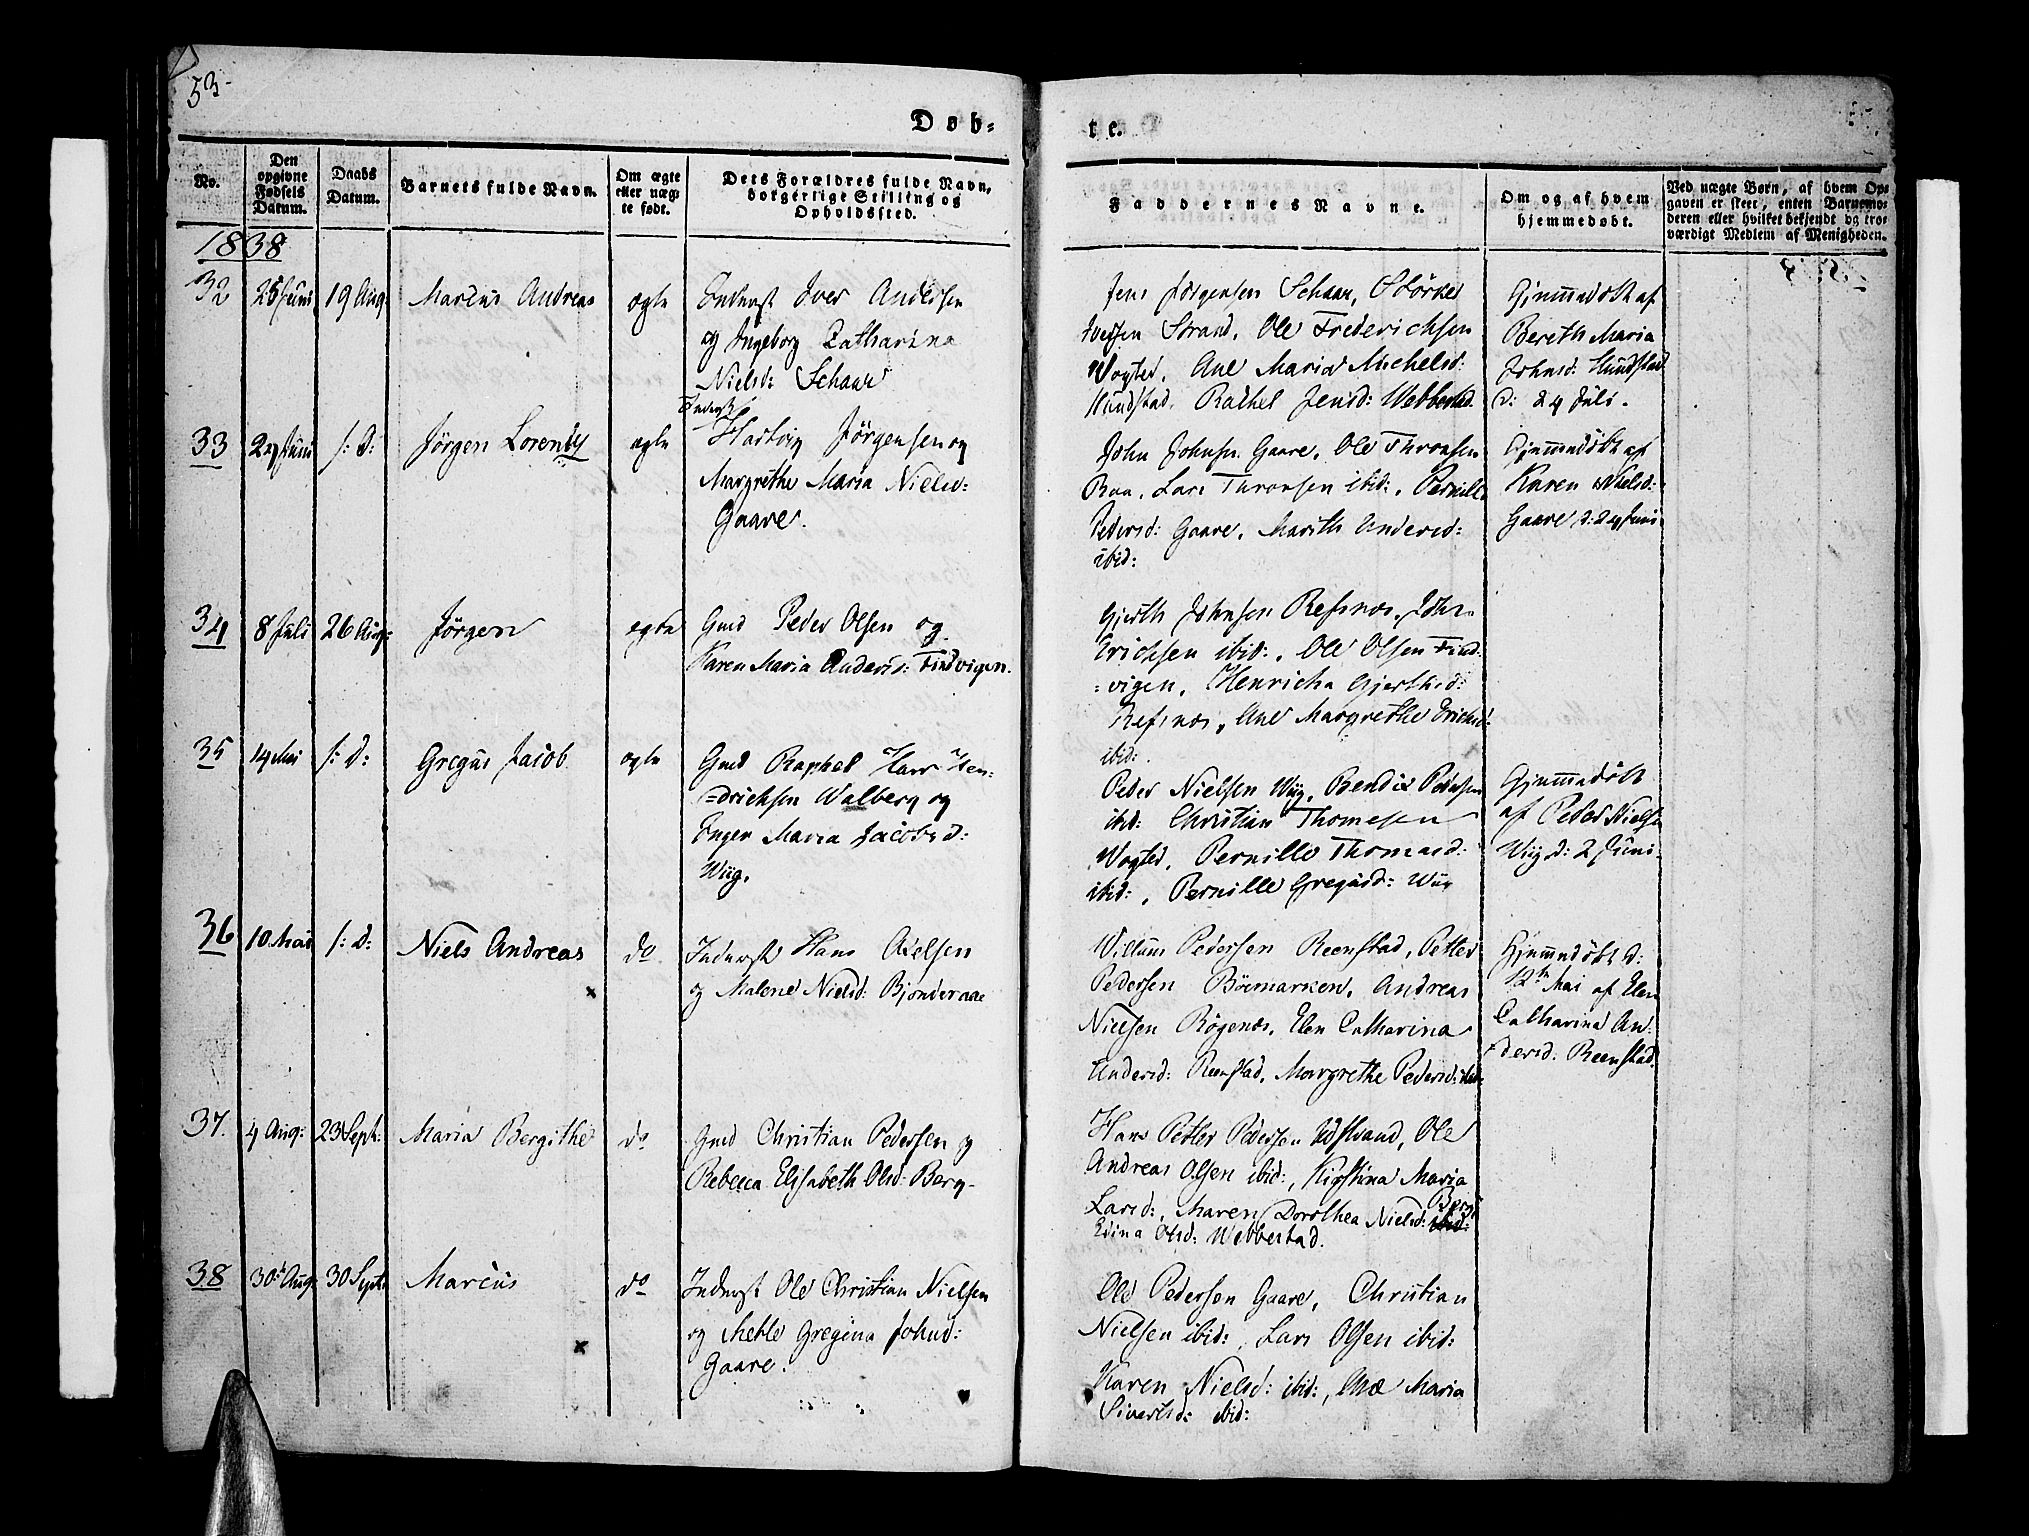 53
Døb-
te.
No.
Den
opgivne
Fødsels
Datum.
Daabs
Datum.
Barnets fulde Navn.
Om ægte
eller uægte
te født.
Dets Forældres fulde Navn,
borgerlige Stilling og
Opholdssted.
Faddernes Navne.
Om og af hvem
hjemmedøbt.
Ved uægte Børn, af hvem Op-
gaven er skeet, enten Barnemo-
deren eller hvilket bekjendt og tro-
værdigt Medlem af Menigheden.
1838
32 26 Juni 19 Aug: Marcus Andreas ægte
Inderst Iver Andersen
og Ingeborg Catharina
Nielsd: Schaar
Jens Jørgensen Schaar, Størker
Strand, Ole Frederichsen
Vogted, Ane Maria Michelsd:
Hundstad, Rachel Jensd: Webbestad
Hjemmedøbt af
Bereth Maria
Johnsd: Hundstad
d: 24 Juli.
33 24 Juni /: d: Jörgen Lorents ægte
Inderst
Hartvig Jörgensen og
Margrethe Maria Nielsd:
Gaare.
John Johnsen Gaare, Ole Thronsen
Lars Thronsen ibid:, Pernille
Pedersd: Gaare, Marith Andersd:
ibid:
Hjemmedøbt af
Karen Nielsd:
Gaare d: 24 Juni
34 8 Juli 26 Aug: Jörgen ægte
Gmd Peder Olsen og
Karen Maria Andersd: Findvigen.
Gjerth Johnsen Refsnes, John
Erichsen ibid:, Ole Olsen Find=
=vigen, Henricha Gjerthsd:
Refsnes, Ane Margrethe Erichsd:
ibid:.
35 14 Mai /: d: Gregus Jacob ægte
Gmd Raphel Hans Hen=
=drichsen Walberg og
Inger Maria Jacobsd:
Wiig.
Peder Nielsen Wiig, Bendix Pedersen
ibid: Christian Thomesen
Vogted, Pernille Thomasd:
ibid:, Pernille Gregusd: Wiig
Hjemmedøbt
af Peder Nielsen
Wiig d: 2 Juni.
36 10 Mai /: d: Niels Andreas do
Inderst Hans Axelsen
og Malene Nielsd: Bjonderaae
Willum Pedersen Reenstad, Petter
Pedersen Börmarken, Andreas
Nielsen Rögenes, Elen Catharina
Andersd: Reenstad, Margrethe Pedersd: ibid:
Hjemmedøbt d:
12th Mai af Elen
Catharina An=
dersd: Reenstad.
37. 4 Aug: 23 Sept: Maria Bergithe do
Gmd Christian Pedersen og
Rebecca Elisabeth Olsd: Berg.
Hans Petter Pedersen Udstrand, Ole
Andreas Olsen ibid:, Kirstina Maria
Larsd:, Maren Dorothea Nielsd: Berg
Edina Olsd: Webbestad.
38 30 Aug: 30 Sept: Marcus do
Inderst Ole Christian Nielsen
og Mette Gregina Johnsd:
Gaare.
Ole Pedersen Gaare, Christian
Nielsen ibid:, Lars Olsen ibid:
Karen Nielsd: ibid:, Ane Maria
Sivertsd: ibid: